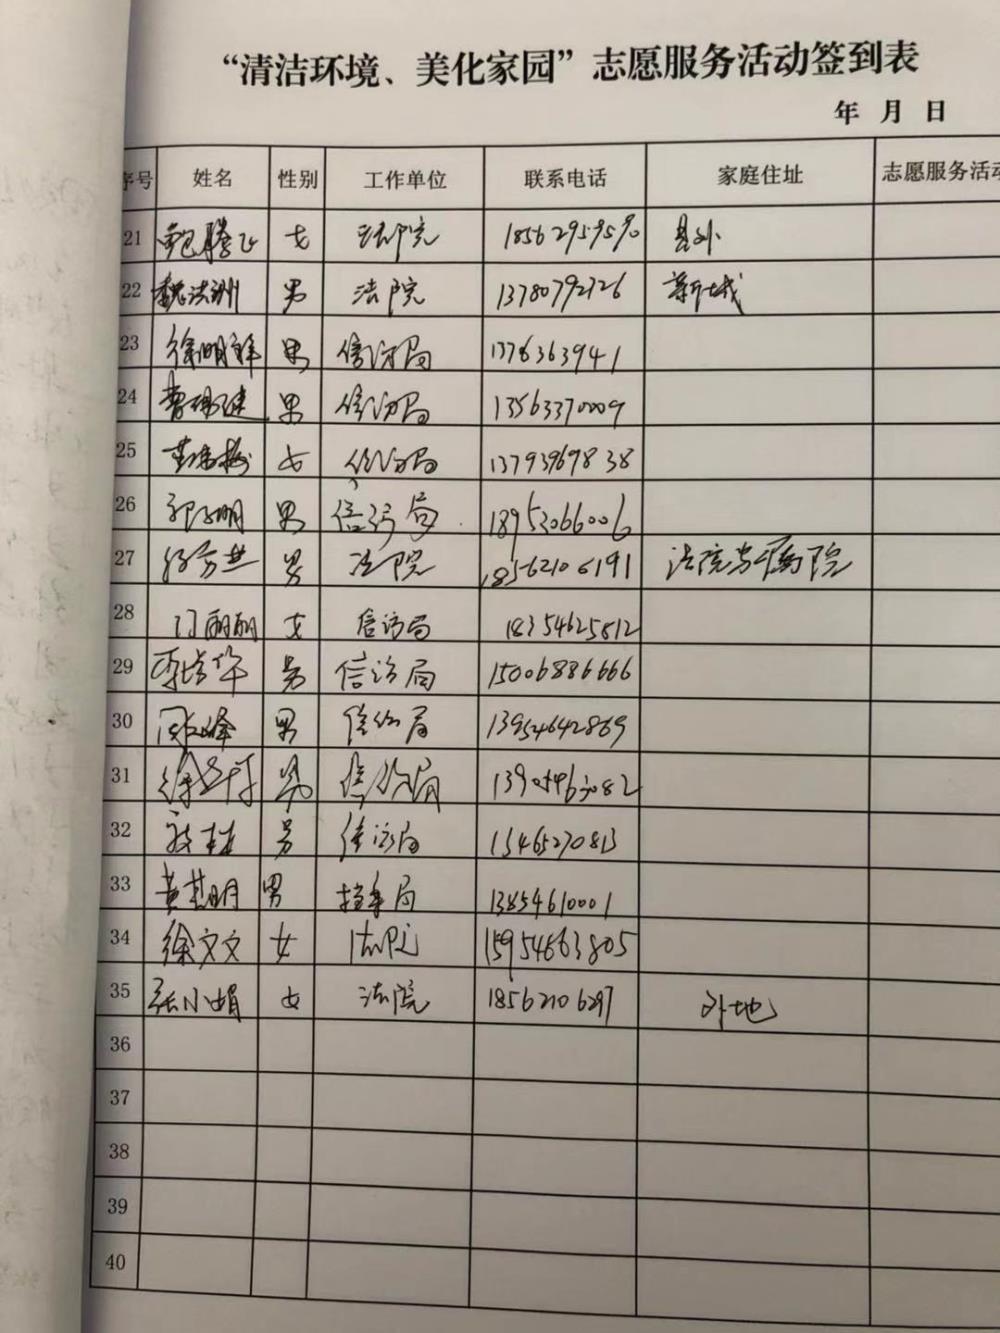 “清洁环境、美化家园”志愿服务活动签到表
年 月 日
序号 姓名 性别 工作单位 联系电话 家庭住址 志愿服务活动
21 鲍腾飞 女 法院 18562959590 县外
22 魏洪洲 男 法院 13780792726 新城
23 徐明祥 男 信访局 1376363941
24 曹 建 男 信访局 13563370009
25 女 信访局 13793969838
26 明 男 信访局 18953066006
27 男 法院 18562106191 法院 病院
28 门丽丽 女 信访局 18354625812
29 李 华 男 信访局 15006886666
30 周 峰 男 信访局 13954642869
31 徐 男 信访局 13905463082
32 男 信访局 13465270813
33 黄其明 男 档案局 13854610001
34 徐文文 女 法院 15954663805
35 张小娟 女 法院 18562106297 外地
36
37
38
39
40